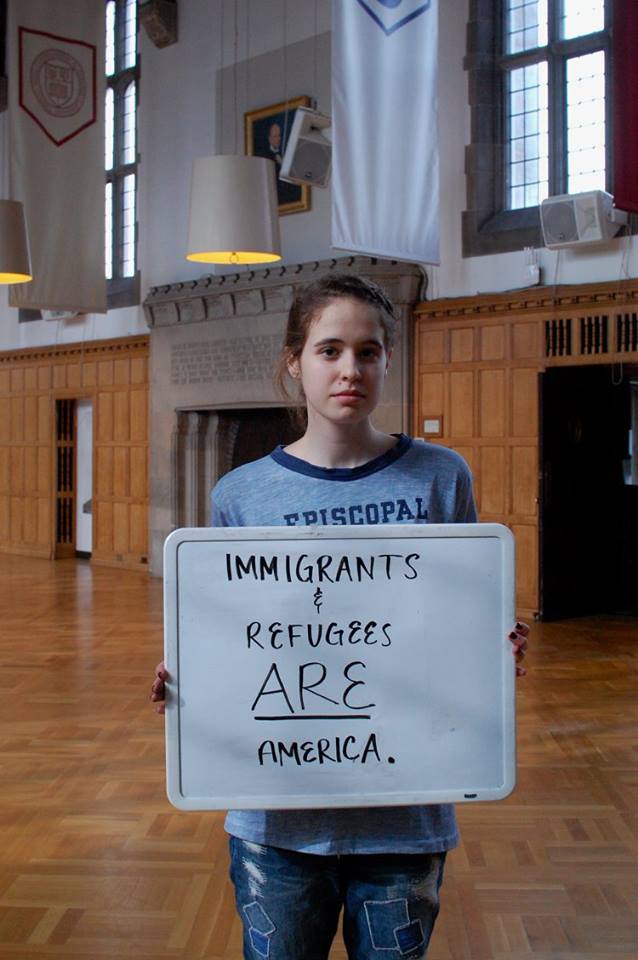 EPISCOPAL
IMMIGRANTS
&
REFUGEES
ARE
AMERICA.